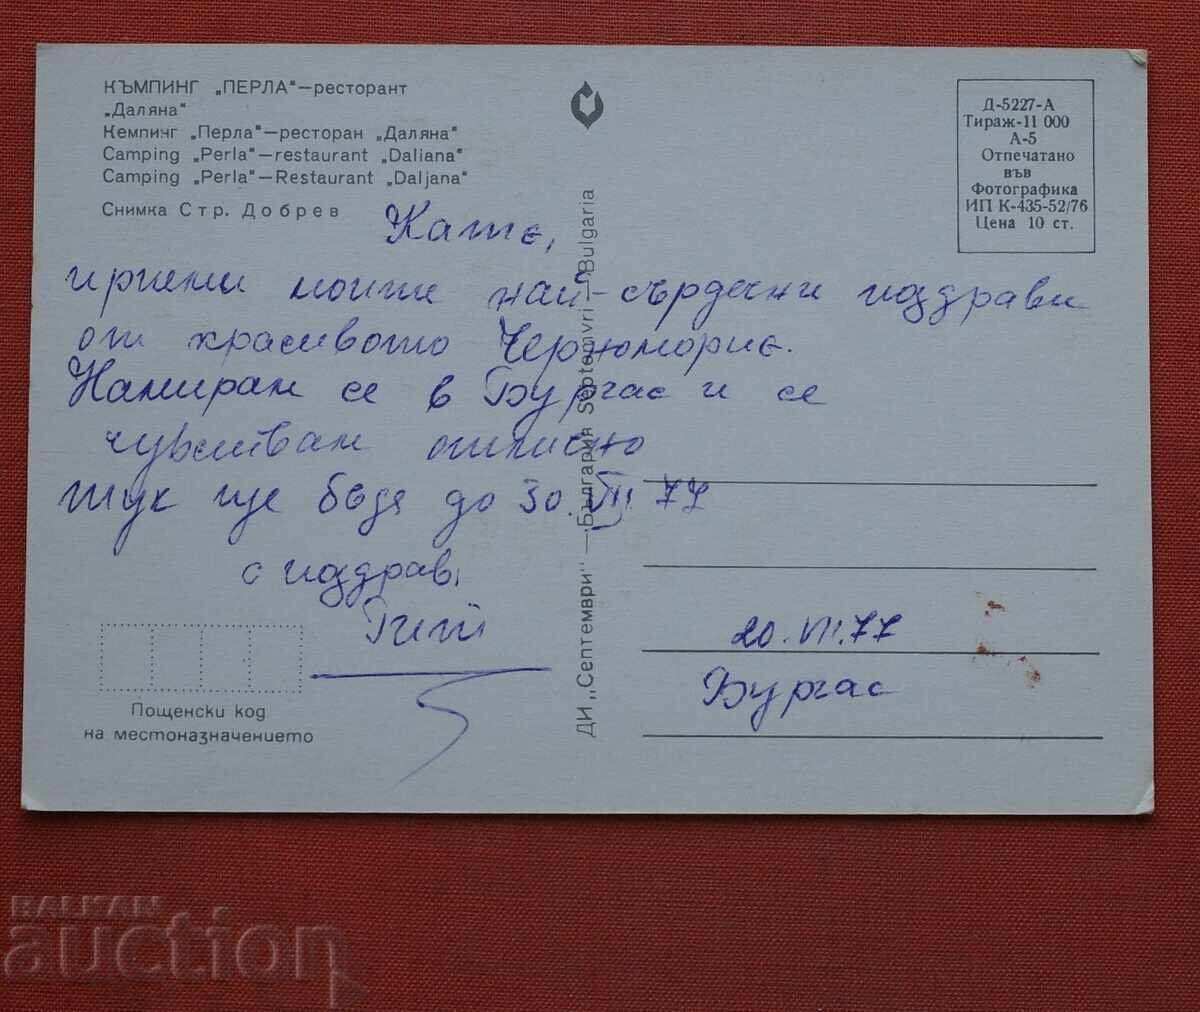 КЪМПИНГ „ПЕРЛА"—ресторант
„Даляна"
Кемпинг „Перла"—ресторан „Даляна"
Camping „Perla"—restaurant „Daliana"
Camping „Perla"—Restaurant „Daljana"
Снимка Стр. Добрев
Кате,
приеми моите най-сърдечни поздрави
от красивото Черноморие.
Намирам се в Бургас и се
чувствам отлично
тук ще бъда до 30.VIII.77
с поздрав,
Пощенски код
на местоназначението
ДИ „Септември" — България Septemvri — Bulgaria
Д-5227-А
Тираж-11 000
А-5
Отпечатано
във
Фотографика
ИП К-435-52/76
Цена 10 ст.
20.VII.77
Бургас
BALKAN
auction